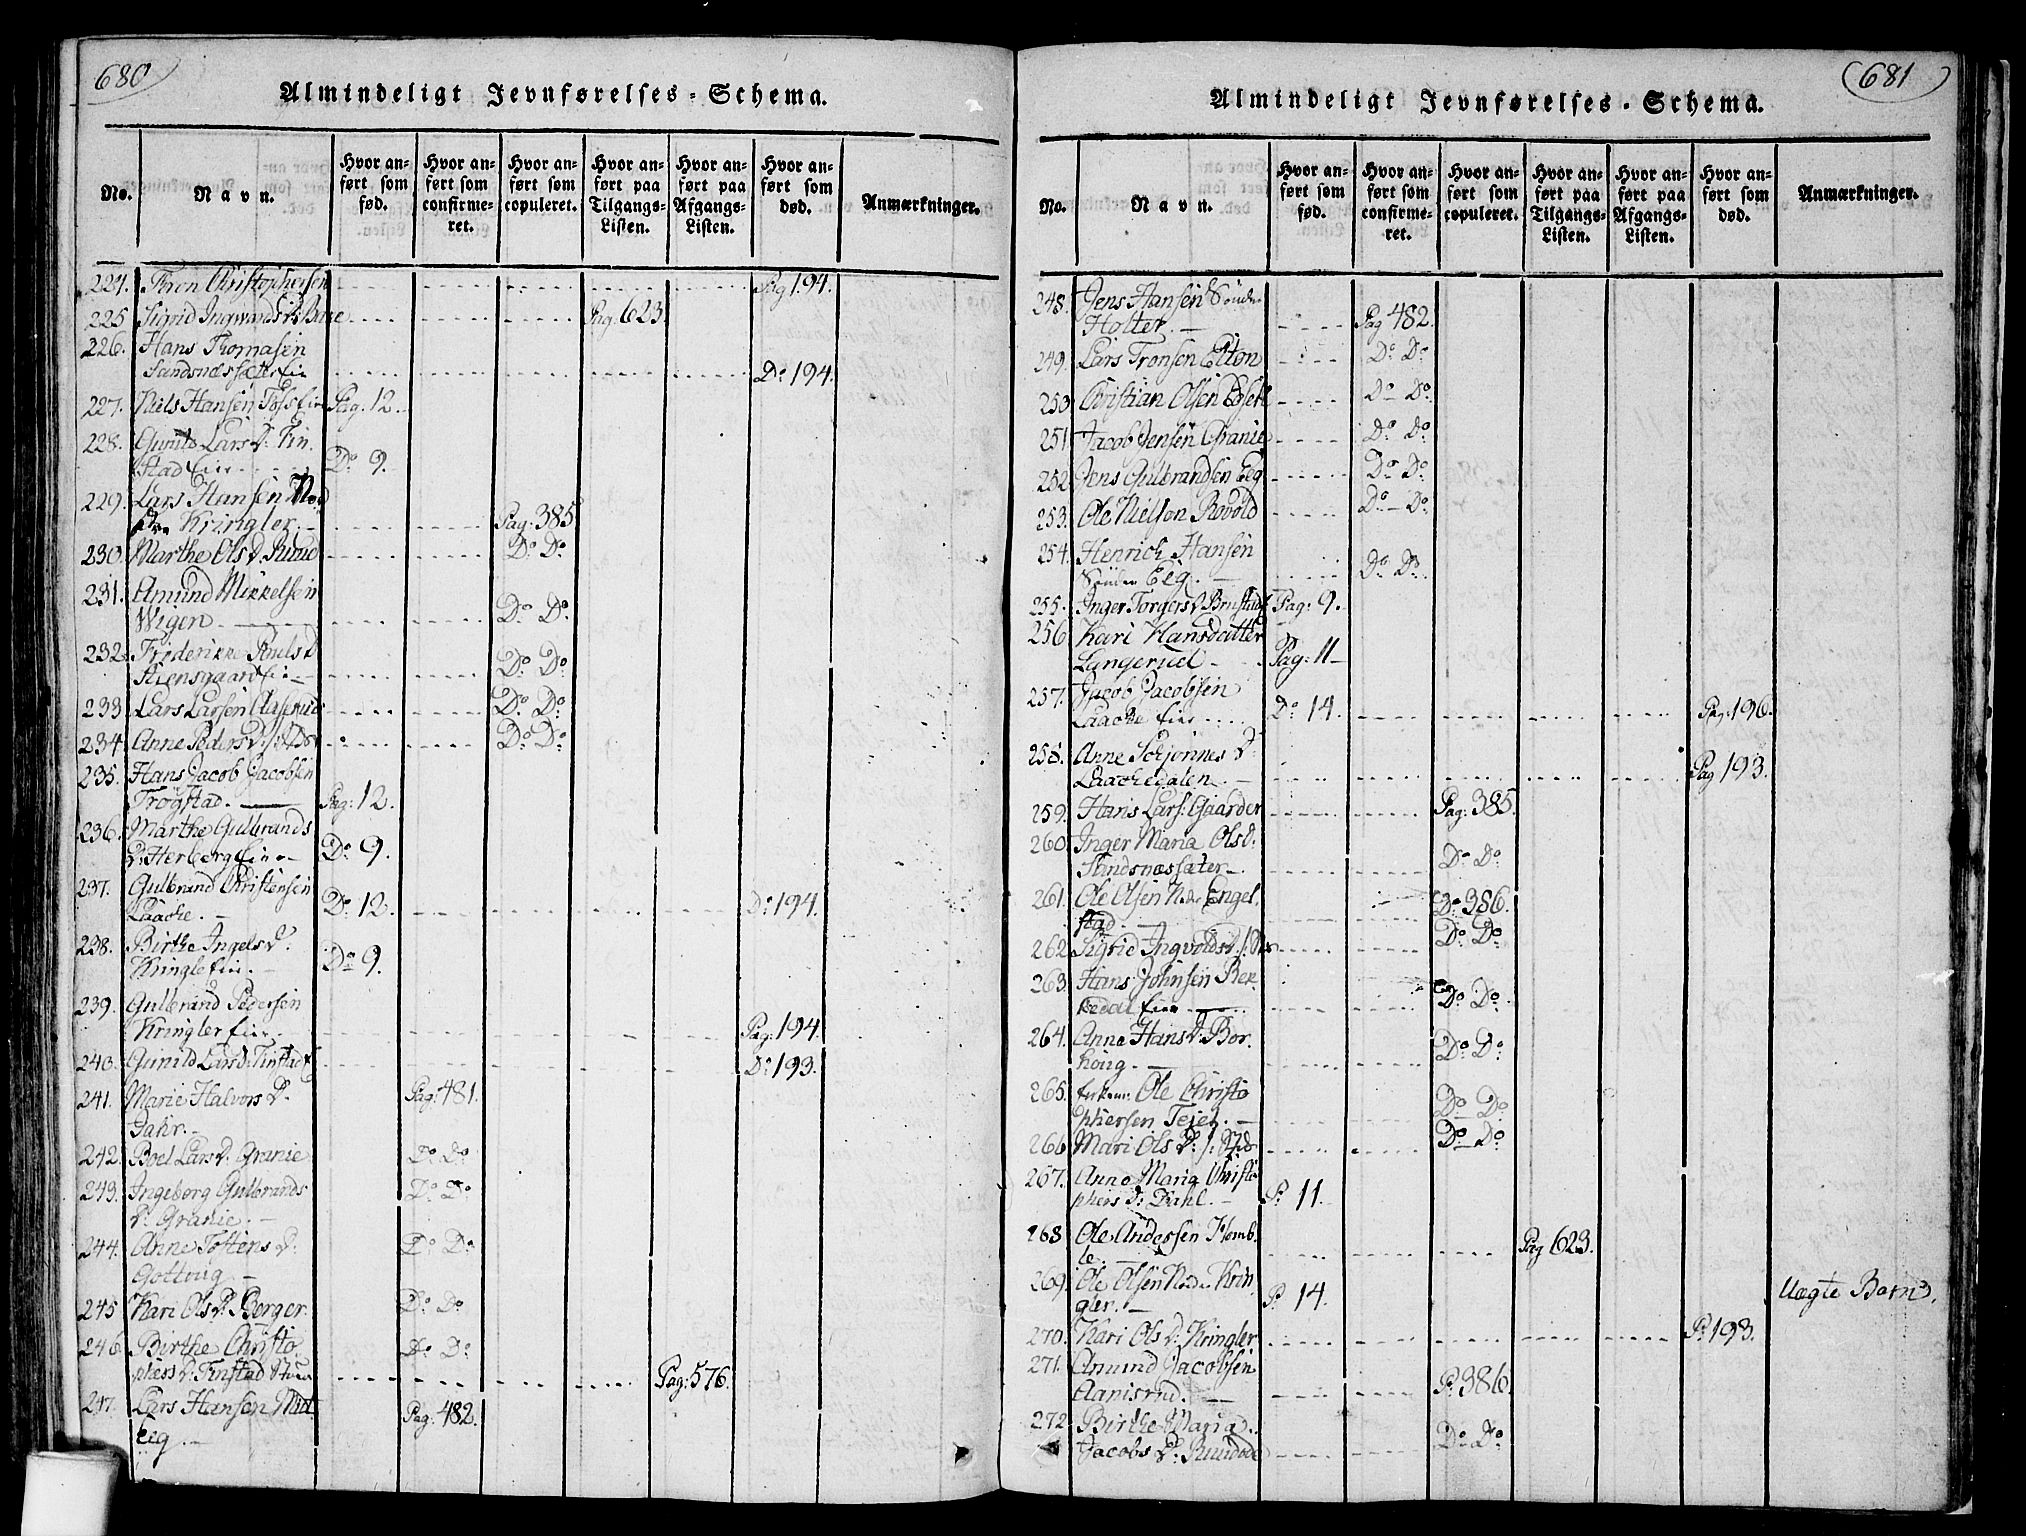 680
Almindeligt Jevnførelses-Schema.
No.
Navn.
Hvor anført som fød.
Hvor anført som confirmeret.
Hvor anført som copuleret.
Hvor anført paa Tilgangs-Listen.
Hvor anført paa Afgangs-Listen.
Hvor anført som død.
Anmærkninger.
224. Thron Christophersen Pag 194.
225 Sigrid Ingwards D. Pag. 623.
226. Hans Thomasen
Sandsnæssæter Eie Do 194.
227. Niels Hansen Pag. 12.
228. Gunild Lars D. Tin
stad Eie Do 9.
229. Lars Hansen Ned
re Kringler. Pag: 385
230. Marthe Ols D. Ruud Do Do
231. Amund Mikkelsen
Wigen Do Do
232. Friderikke Pouls D
Stensgaard Eie Do Do
233 Lars Larsen Aaserud Do Do
234. Anne Peders D. Do Do
235. Hans Jacob Jacobsen
Trøgstad. Pag: 12.
236. Marthe Gulbrands
D. Herberg Eie Do 9.
237. Gulbrand Christensen
Laache. Do 12. Do 194.
238. Birthe Ingels D.
Kringler Eie. Do 9.
239. Gulbrand Pedersen
Kringler Eie Pag: 194.
240. Gunild Lars D. Tinstad E Do 193.
241. Marie Halvors D. Pag: 481.
Dahr.
242. Boel Lars D. Granie Do Do
243. Ingeborg Gulbrands Do Do
D. Granie.
244. Anne Toftens D. Do Do
Gottvig
245 Kari Ols D. Berger. Do Do
246. Birthe Christo Do Do
phers D. Tinstad Pag: 576.
247. Lars Hansen Mel Pag: 482.
Eeg.
681
Almindeligt Jevnførelses-Schema.
No.
Navn.
Hvor anført som fød.
Hvor anført som confirmeret.
Hvor anført som copuleret.
Hvor anført paa Tilgangs-Listen.
Hvor anført paa Afgangs-Listen.
Hvor anført som død.
Anmærkninger.
248. Jens Hansen Sønder
Holter. Pag 482.
249. Lars Tronsen Elton Do Do
250 Christian Olsen Do Do
251 Jacob Jensen Granie Do Do
252 Jens Gulbrandsen Eeg Do Do
253. Ole Nielsen Rovold Do Do
254. Henrich Hansen
Sønder Eeg. Do Do
255. Inger Torgers D. Brustad E Pag: 9.
256 Kari Hansdatter
Langerud Pag: 11
257. Jacob Jacobsen
Laache Eie Do 14. Pag. 196.
258. Anne Schjønnes D.
Laachedalen. Pag 193.
259. Hans Lars. Gaarder Pag: 385.
260. Inger Maria Ols D.
Sandsnæssæter Do Do
261. Ole Olsen Nedr Engel Do 386.
stad
262 Sigrid Ingvolds D. Do Do
263. Hans Johnsen Bek
kedal Eie Do Do
264. Anne Hans D. Bor Do Do
houg.
265. Enkem. Ole Christo
phersen Teiег. Do Do
266 Mari Ols D. Do Do
267. Anne Maria Christo
phers D. Dahl. P. 11.
268 Ole Andersen Homb
le. Pag 623.
269. Ole Olsen Nedre Krin
gler. P. 14. Uægte Barn.
270. Kari Ols D. Kringler P. 193.
271. Amund Jacobsen
Aanisrud. P. 386.
272. Birthe Maria
Jacobs D. Do Do